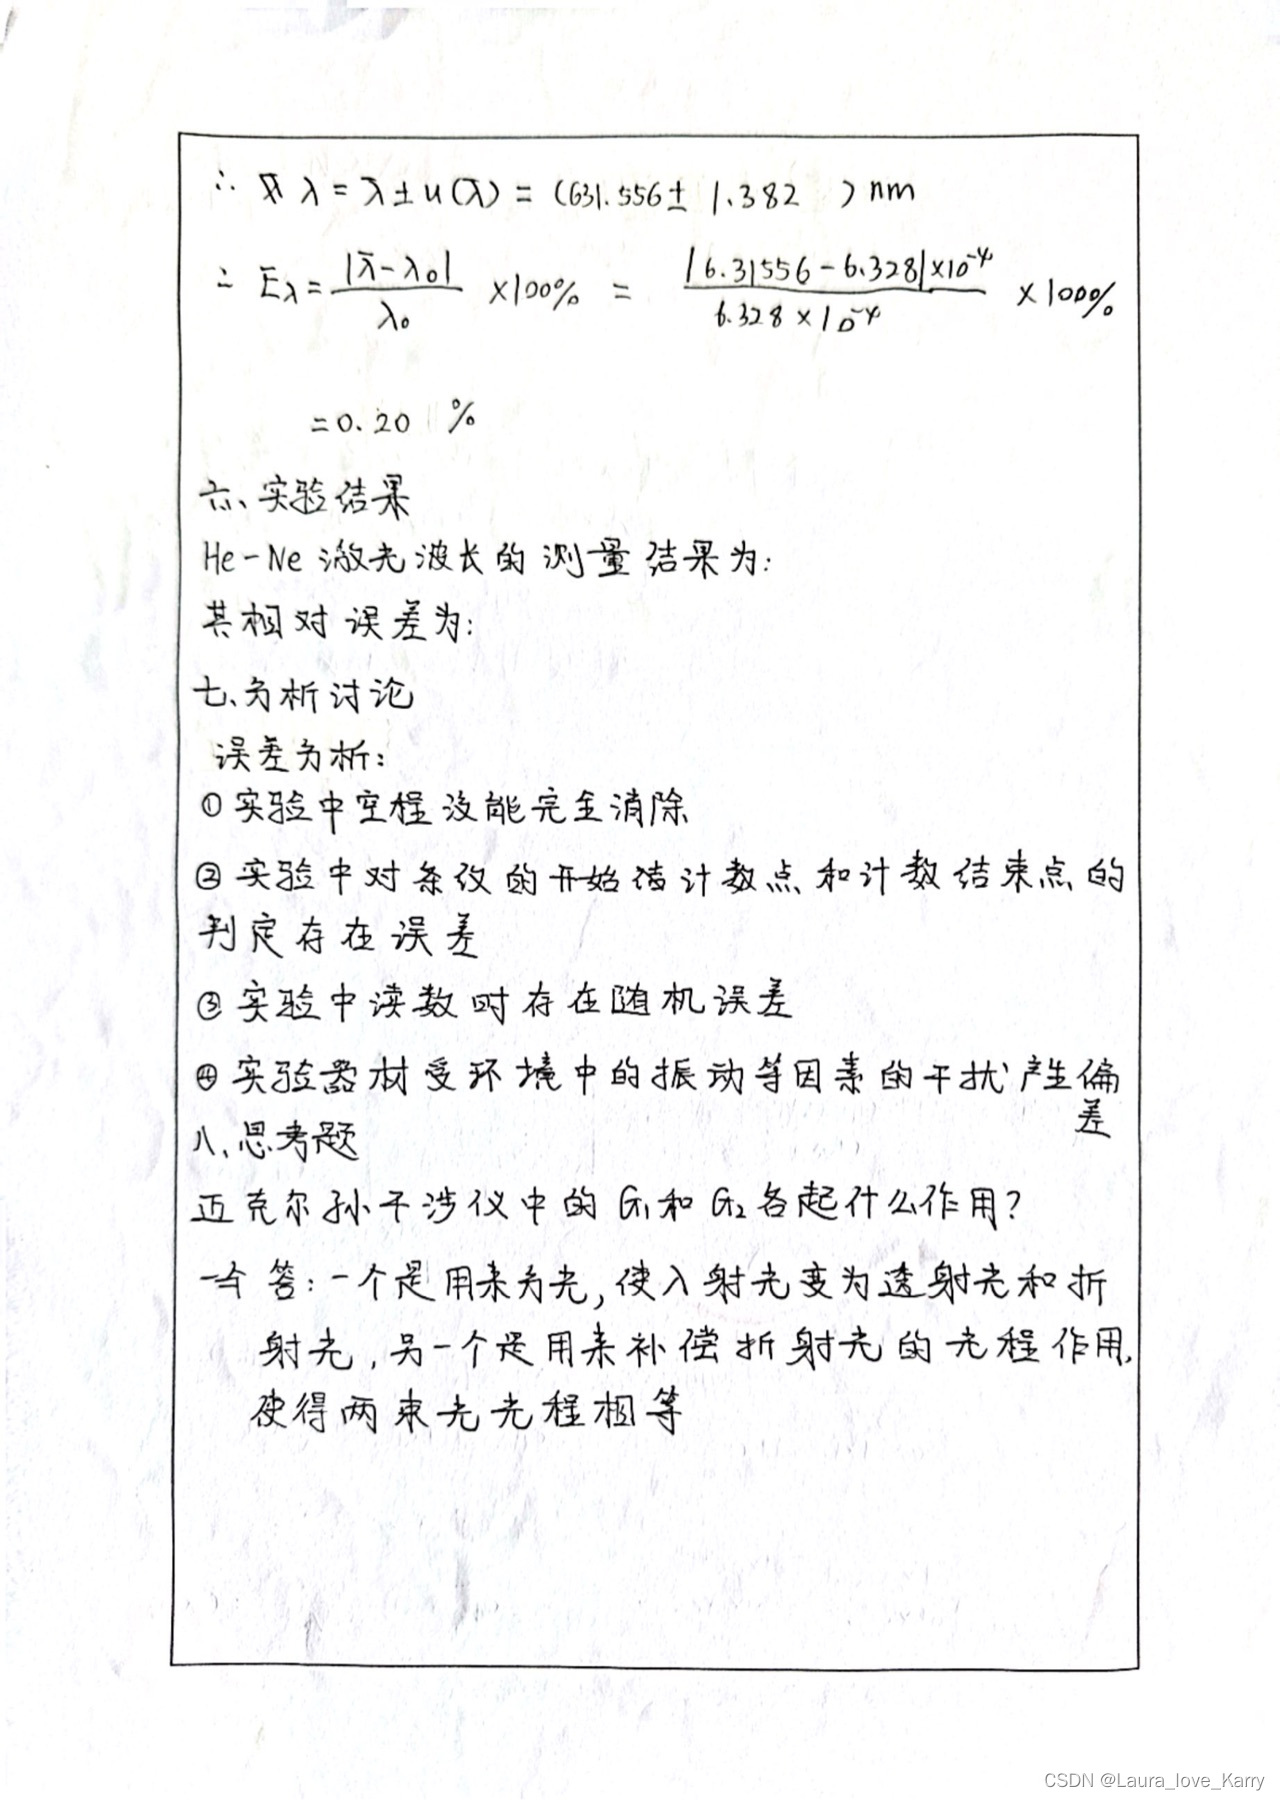 ∴ λ = λ̄ ± u(λ̄) = (631.556 ± 1.382 ) nm
∴ Eλ = |λ̄-λ₀| / λ₀ ×100% = |6.31556-6.328|×10⁻⁴ / 6.328×10⁻⁴ ×100%
=0.20 %
六、实验结果
He-Ne 激光波长的测量结果为:
其相对误差为:
七、分析讨论
误差分析:
①实验中空程没能完全消除
②实验中对条纹的开始计数点和计数结束点的
判定存在误差
③实验中读数时存在随机误差
④实验器材受环境中的振动等因素的干扰产生偏
差
八、思考题
迈克尔孙干涉仪中的G₁和G₂各起什么作用?
答:一个是用来分光,使入射光变为透射光和折
射光,另一个是用来补偿折射光的光程作用,
使得两束光光程相等
CSDN @Laura_love_Karry